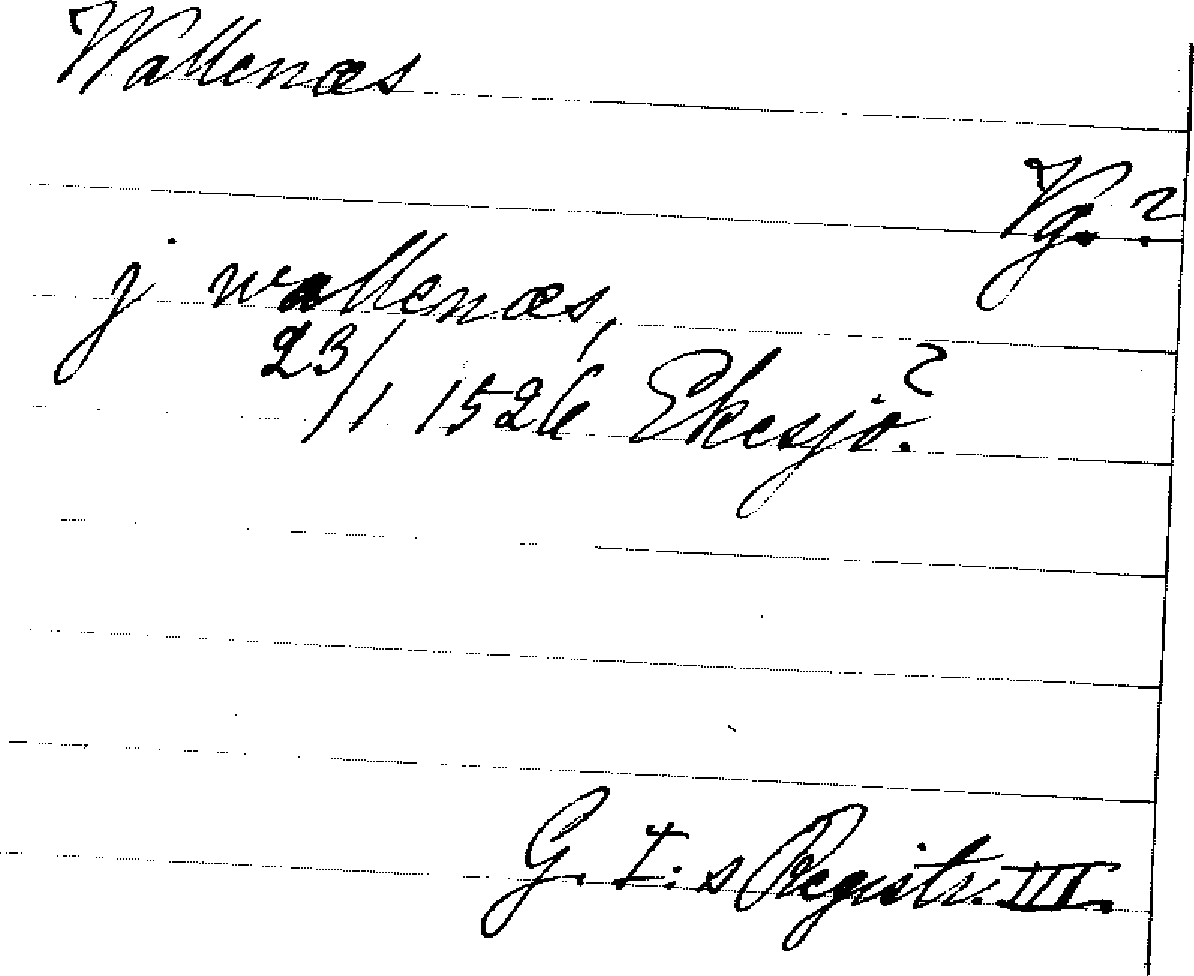 Wallenæs
Vg. ?
j wallenæs,
23/1 1526 Ekesjö.?
G. I:s Registr. III.